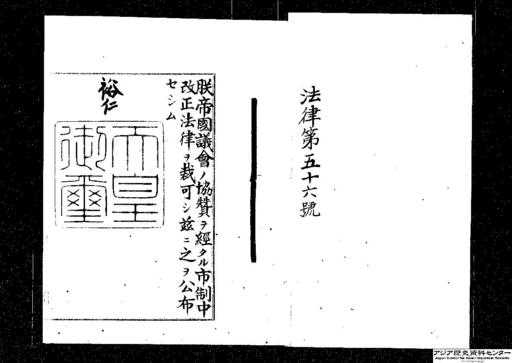 法律第五十六號
朕帝國議會ノ協贊ヲ經タル市制中
改正法律ヲ裁可シ茲ニ之ヲ公布
セシム
裕仁
天皇
御璽
アジア歴史資料センター
Japan Center for Asian Historical Records